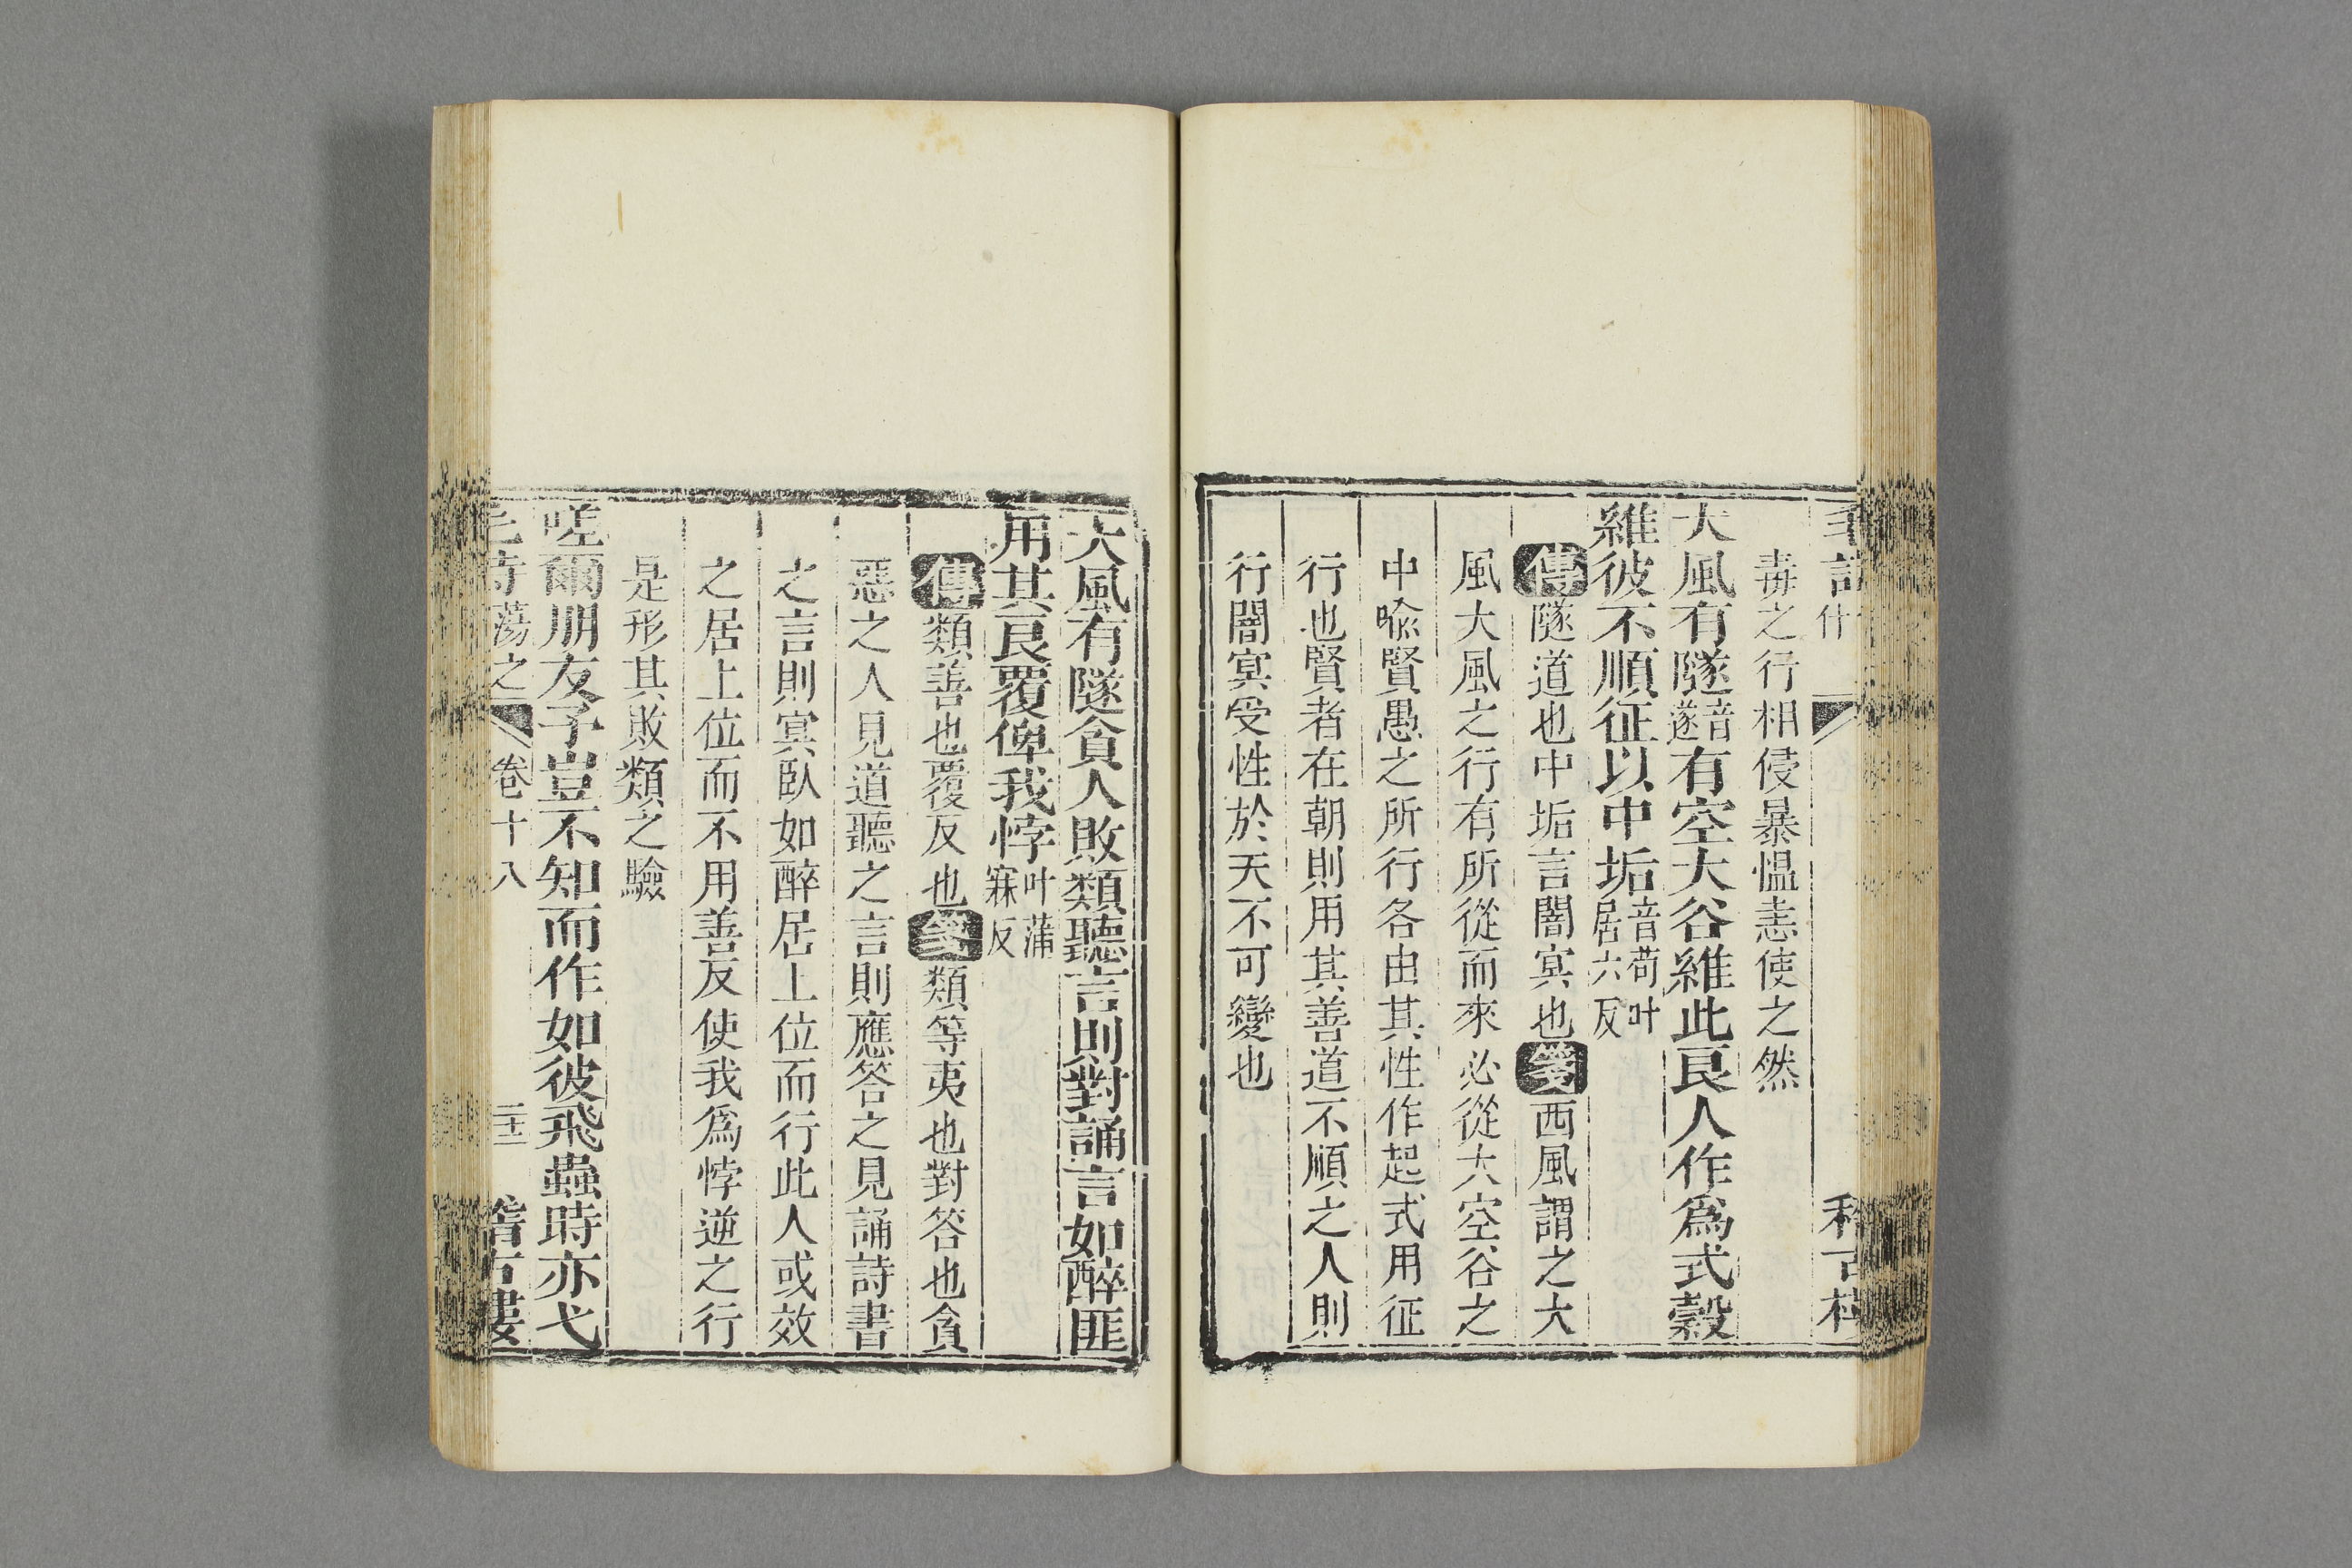 毒之行相侵暴慍恚使之然
大風有隧音遂有空大谷維此良人作爲式穀
維彼不順征以中垢音苟叶居六反
傳隧道也中垢言闇冥也箋西風謂之大
風大風之行有所從而來必從大空谷之
中喩賢愚之所行各由其性作起式用征
行也賢者在朝則用其善道不順之人則
行闇冥受性於天不可變也
大風有隧貪人敗類聽言則對誦言如醉匪
用其良覆俾我悖叶蒲寐反
傳類善也覆反也箋類等夷也對答也貪
惡之人見道聽之言則應答之見誦詩書
之言則冥臥如醉居上位而行此人或效
之居上位而不用善反使我爲悖逆之行
是形其敗類之驗
嗟爾朋友予豈不知而作如彼飛蟲時亦弋
卷十八